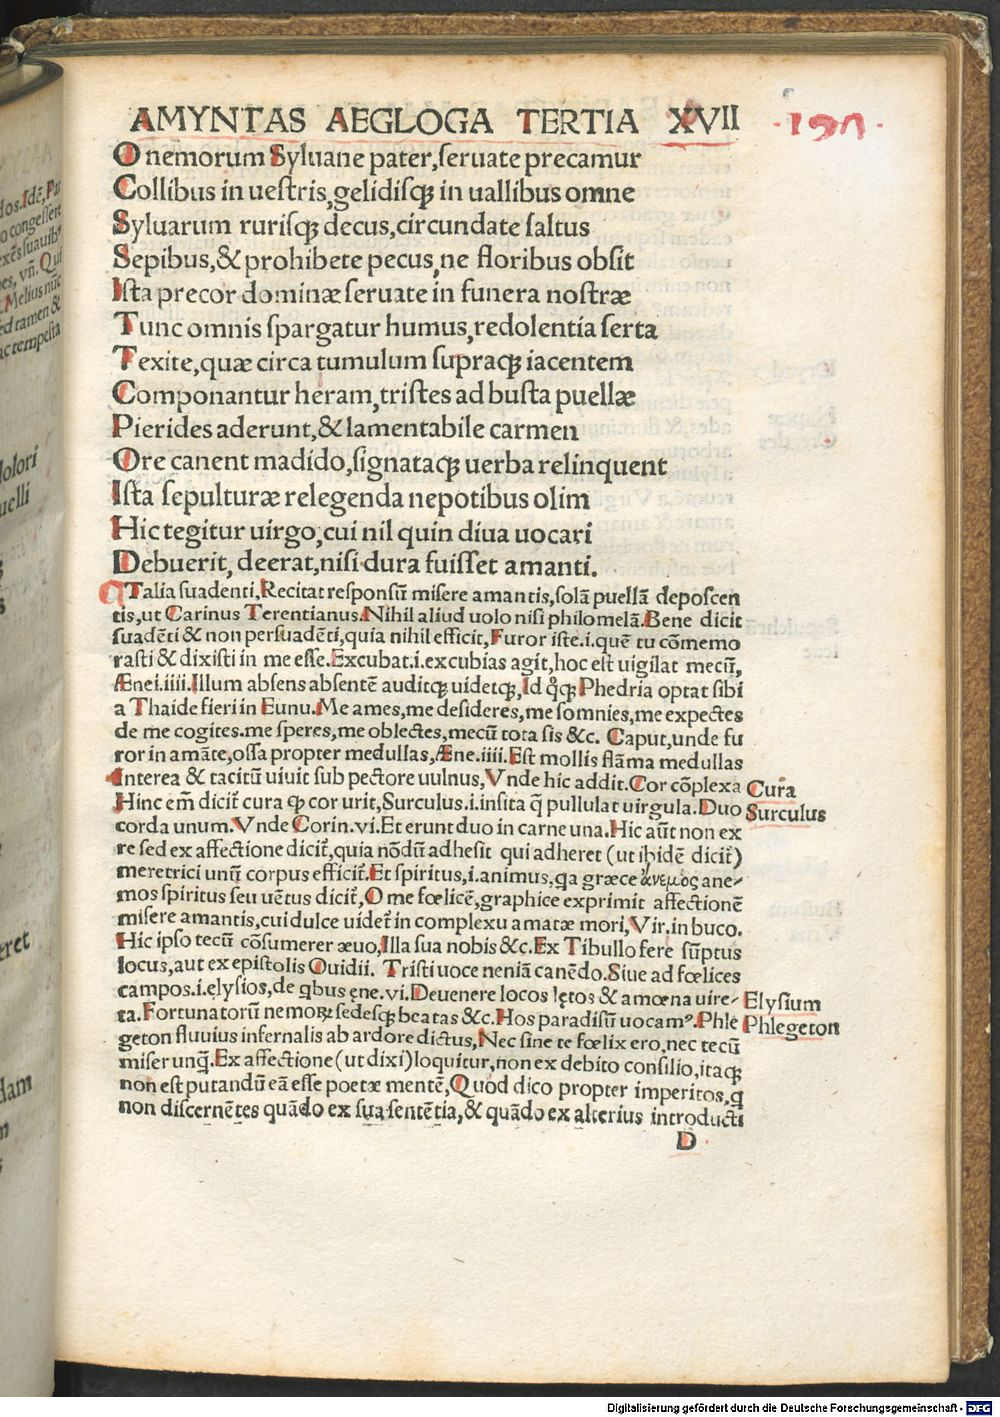 AMYNTAS AEGLOGA TERTIA XVII
·197·
O nemorum Syluane pater,ſeruate precamur
Collibus in ueſtris,gelidiſqꝫ in uallibus omne
Syluarum ruriſqꝫ decus,circundate ſaltus
Sepibus,& prohibete pecus,ne floribus obſit
Iſta precor dominæ ſeruate in funera noſtræ
Tunc omnis ſpargatur humus,redolentia ſerta
Texite,quæ circa tumulum ſupraqꝫ iacentem
Componantur heram,triſtes ad buſta puellæ
Pierides aderunt,& lamentabile carmen
Ore canent madido,ſignataqꝫ uerba relinquent
Iſta ſepulturæ relegenda nepotibus olim
Hic tegitur uirgo,cui nil quin diua uocari
Debuerit, deerat,niſi dura fuiſſet amanti.
Talia ſuadenti,Recitat reſponſū miſere amantis,ſolā puellā depoſcen
tis,ut Carinus Terentianus.Nihil aliud uolo niſi philomelā.Bene dicit
ſuadēti & non perſuadēti,quia nihil efficit,Furor iſte.i.quē tu cōmemo
raſti & dixiſti in me eſſe.Excubat.i.excubias agit,hoc eſt uigilat mecū,
Ænei.iiii.Illum abſens abſentē auditqꝫ uidetqꝫ,Id qͦqꝫ Phedria optat ſibi
a Thaide fieri in Eunu.Me ames,me deſideres,me ſomnies,me expectes
de me cogites.me ſperes,me oblectes,mecū tota ſis &c. Caput,unde fu
ror in amāte,oſſa propter medullas,Æne.iiii.Eſt mollis flāma medullas
Interea & tacitū uiuit ſub pectore uulnus,Vnde hic addit.Cor cōplexa
Cura
Hinc em̄ dicit᷑ cura qꝫ cor urit,Surculus.i.inſita q̄ pullulat uirgula.Duo
Surculus
corda unum.Vnde Corin.vi.Et erunt duo in carne una.Hic aūt non ex
re ſed ex affectione dicit᷑,quia nōdū adheſit qui adheret (ut ibidē dicit᷑)
meretrici unū corpus efficit᷑.Et ſpiritus,i.animus,qa græce ἄνεμος ane-
mos ſpiritus ſeu uētus dicit᷑,O me fœlicē,graphice exprimit affectionē
miſere amantis,cui dulce uidet᷑ in complexu amatæ mori,Vir.in buco.
Hic ipſo tecū cōſumerer æuo,Illa ſua nobis &c.Ex Tibullo fere ſūptus
locus,aut ex epiſtolis Ouidii. Triſti uoce neniā canēdo.Siue ad fœlices
campos.i.elyſios,de qbus ęne.vi.Deuenere locos lętos & amœna uire-
Elyſium
ta.Fortunatorū nemorꝫ ſedeſqꝫ beatas &c.Hos paradiſū uocamꝰ.Phle
Phlegeton
geton fluuius infernalis ab ardore dictus,Nec ſine te fœlix ero,nec tecū
miſer unq̄.Ex affectione (ut dixi) loquitur,non ex debito conſilio,itaqꝫ
non eſt putandū eā eſſe poetæ mentē,Quod dico propter imperitos,q
non diſcernētes quādo ex ſua ſentētia,& quādo ex alterius introducti
D
Digitalisierung gefördert durch die Deutsche Forschungsgemeinschaft - DFG